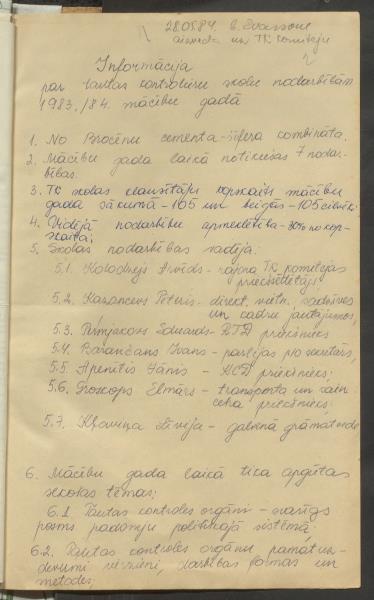 28.05.84.
aizveda uz TK komiteju
Informācija
par tautas kontrolieru skolu nodarbībām
1983./84. mācību gadā
1. No Brocēnu cementa-šīfera kombināta.
2. Mācību gada laikā notikušas 7 nodar-
bības.
3. TK skolas klausītāju kopskaits mācību
gada sākumā - 105 un beigās - 105 cilvēki.
4. Vidējā nodarbību apmeklētība - 80% no kop-
skaita;
5. Skolas nodarbības vadīja:
5.1. Kolodņejs Arvīds - rajona TK komitejas
priekšsēdētājs;
5.2. Kazancevs Pēteris - direkt. vietn. sadzīves
un kadru jautājumos,
5.3. Eduards - priekšnieks
5.4. Barančans Ivans - partijas pirmo sekretārs,
5.5. Apenītis Jānis - priekšnieks;
5.6. Proskops Elmārs - transporta un
ceha priekšnieks;
5.7. Kļaviņa Līvija - galvenā grāmatvede
6. Mācību gada laikā tika apgūtas
sekojošas tēmas:
6.1. Tautas kontroles orgāni - svarīgs
posms padomju politiskajā sistēmā.
6.2. Tautas kontroles orgānu pamatuz-
devumi virzieni, darbības formas un
metodes;